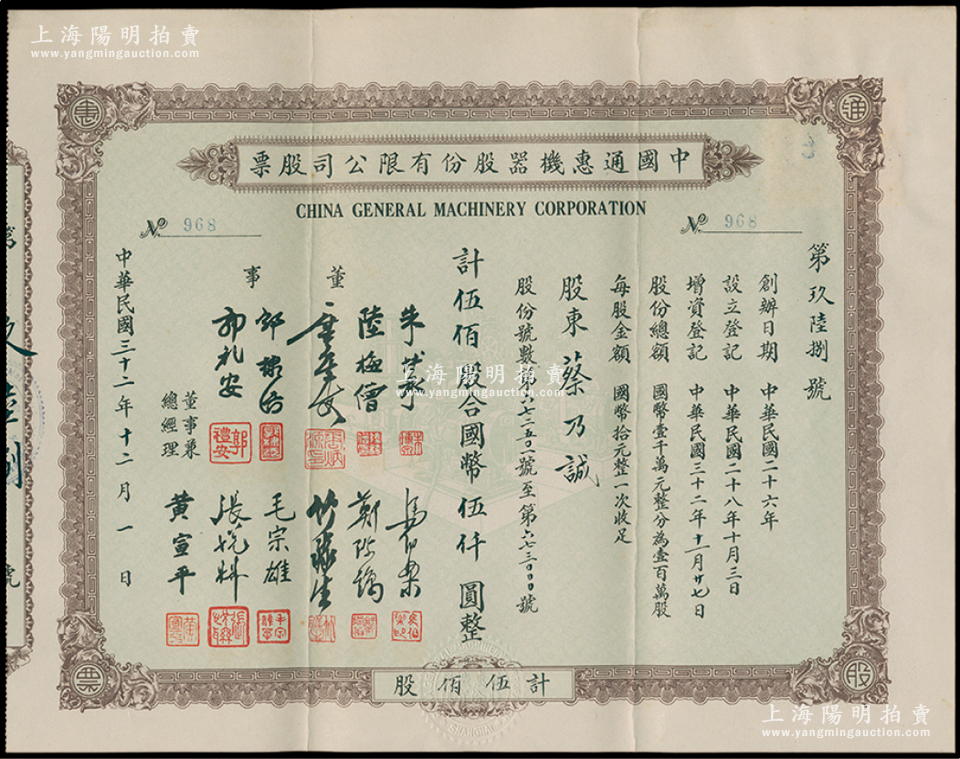 上海陽明拍賣
www.yangmingauction.com
通
書
中國通惠機器股份有限公司股票
CHINA GENERAL MACHINERY CORPORATION
№ 968
№ 968
第玖陸捌號
創辦日期 中華民國二十六年
設立登記 中華民國二十八年十月三日
增資登記 中華民國三十二年十一月廿七日
股份總額 國幣壹千萬元整分為壹百萬股
每股金額 國幣拾元整一次收足
股東 蔡乃誠
股份號數第六七二五〇一號至第六七三〇〇〇號
計伍佰股合國幣伍仟圓整
董
事
朱博泉
陸梅僧
郭禮安
毛宗雄
董事兼
總經理
黃宣平
中華民國三十二年十二月一日
計伍佰股
股
票
SHANGHAI
上海陽明拍賣
www.yangmingauction.com
上海陽明拍賣
www.yangmingauction.com